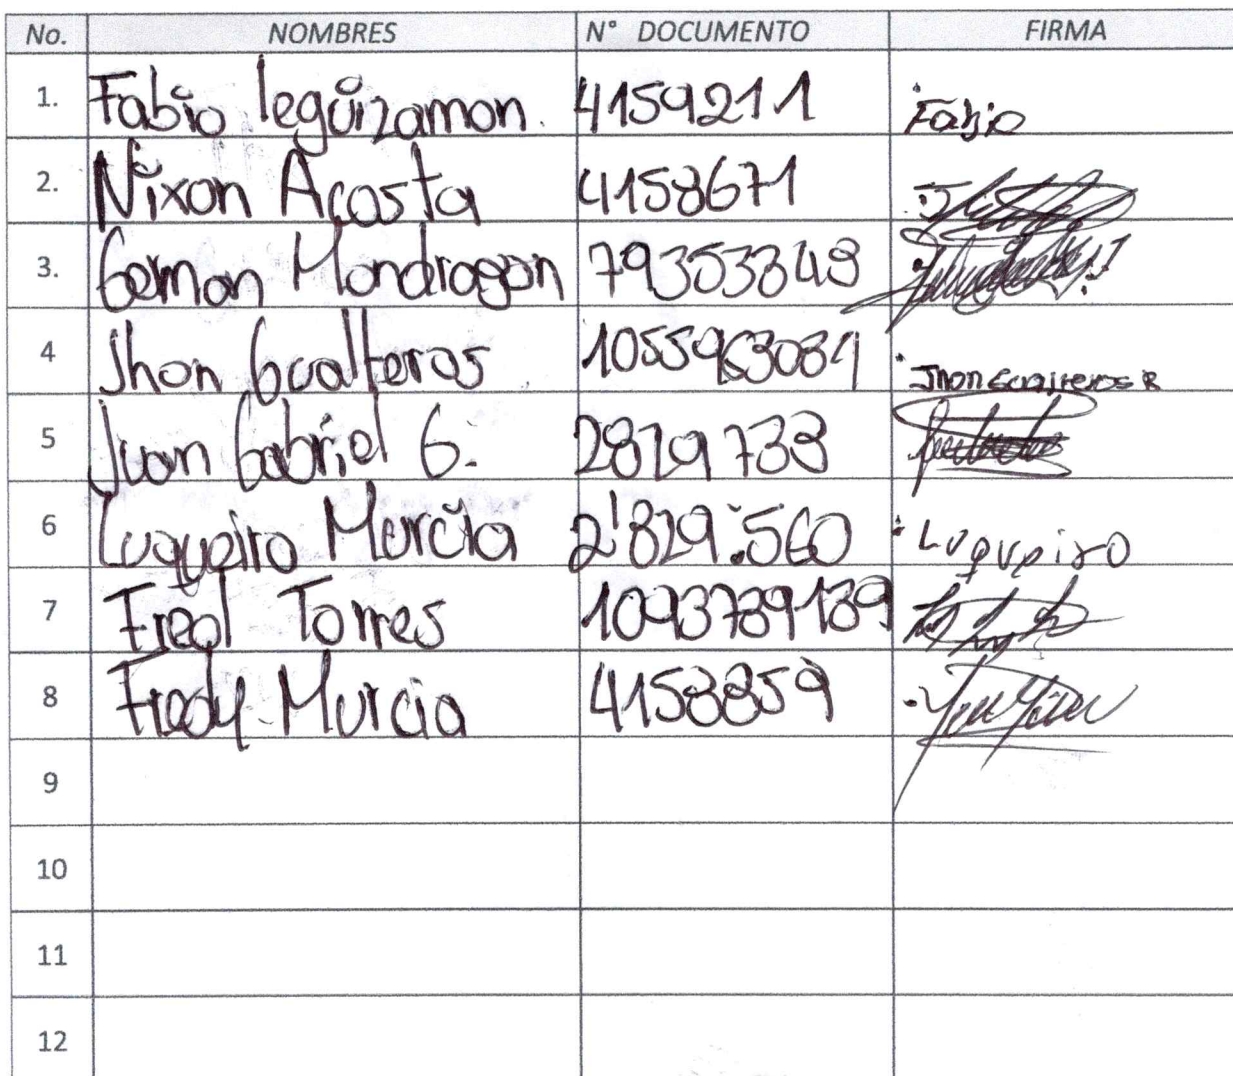 No. NOMBRES N° DOCUMENTO FIRMA
1. Fabio legüizamon. 4159211 Fabio
2. Nixon Acosta 4158671
3. German Mondragon 79353348
4 Jhon Gualteros 1055963084 Jhon Gualteros R
5 Juan Gabriel G. 2819733
6 Luqueiro Murcia 2'829.560 Luqueiro
7 Fredl Torres 1093789139
8 Fredy Murcia 4158859
9
10
11
12